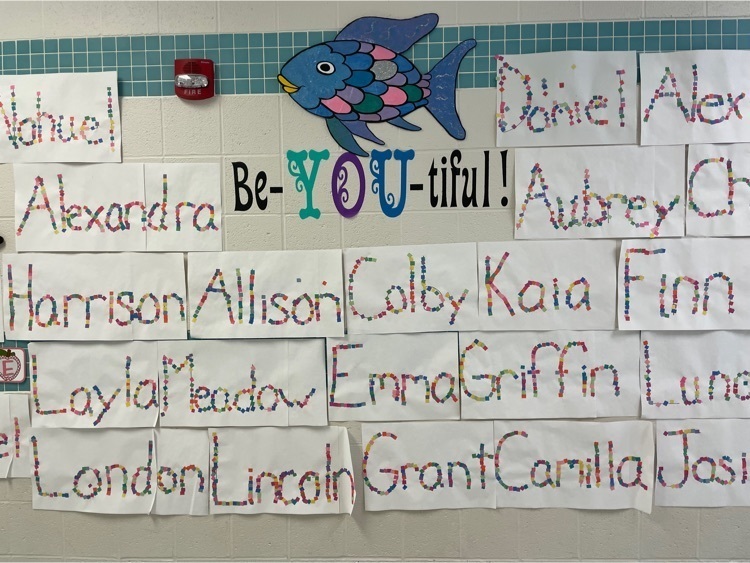 FIRE
Nahuel
Daniel Alex
Be-YOU-tiful!
Alexandra
Aubrey Ch
Harrison Allison Colby Kaia Finn
Layla Meadow Emma Griffin Luna
el London Lincoln Grant Camilla Josi